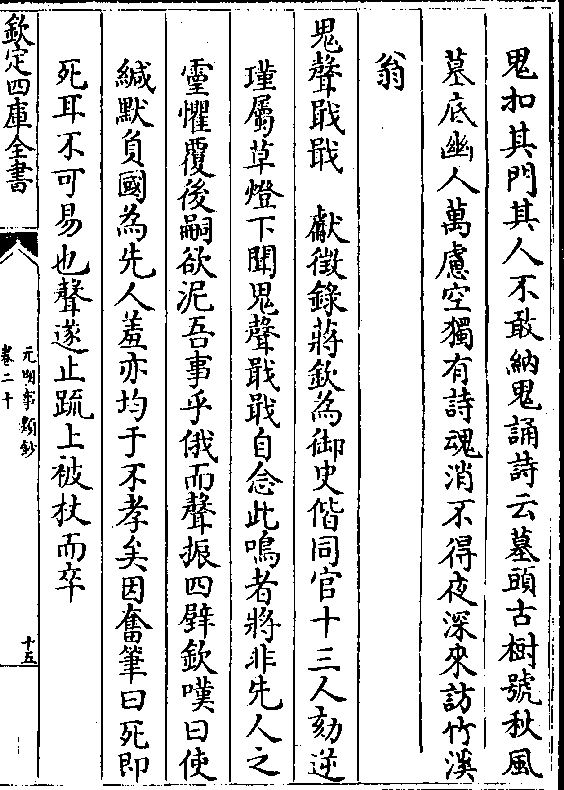 鬼扣其門其人不敢納鬼誦詩云墓頭古樹號秋風
墓底幽人萬慮空獨有詩魂消不得夜深來訪竹溪
翁
鬼聲戢戢　獻徵錄蔣欽為御史偕同官十三人劾逆
瑾屬草燈下聞鬼聲戢戢自念此鳴者將非先人之
靈懼覆後嗣欲泥吾事乎俄而聲振四壁欽嘆曰使
緘默負國為先人羞亦均于不孝矣因奮筆曰死即
死耳不可易也聲遂止疏上被杖而卒
欽定四庫全書
元明事類鈔
卷二十
十五